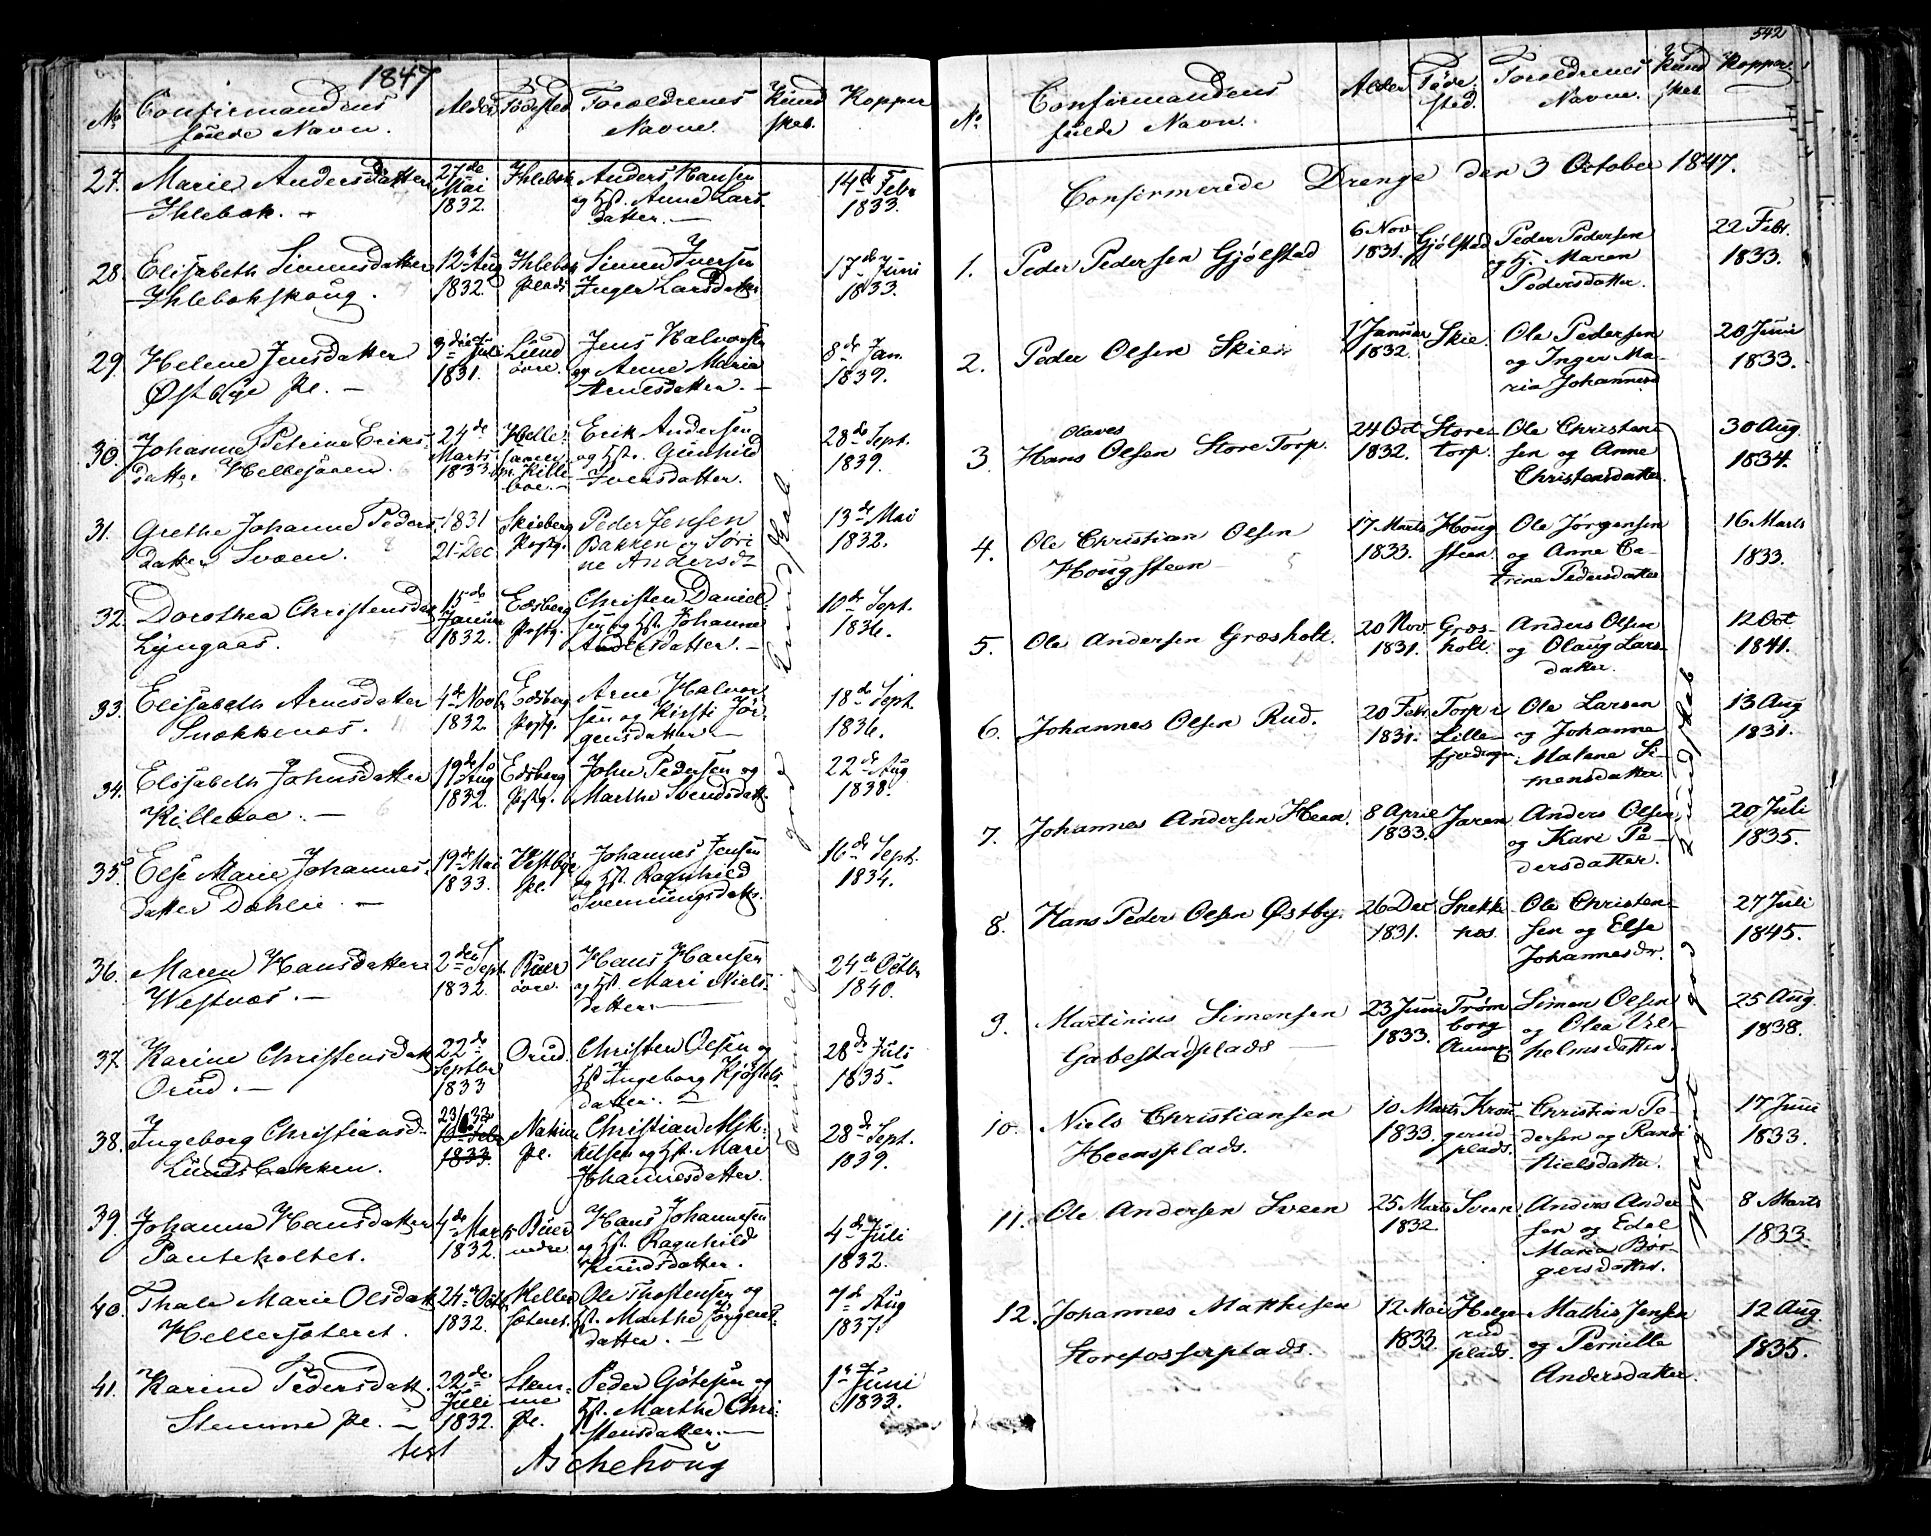 1847
No Confirmandens fulde Navn. Alder Fødested Forældrenes Navne. Kundskab. Kopper
27. Marie Andersdatter Ihlebæk. 27de Mai 1832. Ihlebæk Anders Hansen og Hst. Anne Larsdatter. 14de Febr 1833.
28. Elisabeth Simensdatter Ihlebekskoug. 12te Aug 1832. Ihlebek Plads Simen Iversen Inger Larsdatter 17de Juni 1833.
29. Helene Jensdatter Østbye Pl. 3die Juli 1831. Lund øvre. Jens Halvorsen og Anne Marie Arnesdatter. 8de Jan. 1839.
30. Johanne Petrine Eriksdatter Hellesøeen. 24de Marts 1833 Erik Andersen og Hst. Gunhild Iversdatter. 28de Sept. 1839.
31. Grethe Johanne Pedersdatter Sveen. 1831 21 Dec Skieberg Prstg. Peder Jensen Bakken og Sørine Andersd 13de Mai 1832.
32. Dorothea Christensdatt Lyngaas. 15de Januar 1832. Edsberg Prstg. Christen Danielsen og Hst. Johanne Andersdatter. 10de Sept. 1836.
33. Elisabeth Arnesdatter Snekkenæs. 4de Novbr 1832. Edsberg Prstg. Arne Halvorsen og Kirsti Jørgensdatter 18de Sept. 1836.
34. Elisabeth Johnsdatter Killeboe. 19de Aug 1832. Edsberg Prstg. John Pedersen og Marthe Svendsdatt. 22de Aug 1838.
35. Else Marie Johannesdatter Dahlie. 19de Mai 1833. Vestbye Pl. Johannes Jensen og Hst. Ragnhild Svenningsdatter. 16de Sept. 1834.
36. Maren Hansdatter Westnæs. 2den Sept. 1832. Buer øvre. Hans Hansen og Hst. Mari Nielsdatter. 24de Octbr 1840.
37. Karine Christensdatt Orud. 22de Septbr 1833 Orud. Christen Olsen og Hst Ingeborg Kjøstelsdatter. 28de Juli 1835.
38. Ingeborg Christiansd. Lundsbakken. 23/6 33 1833. Pl. Christian Mikkelsen og Hst. Mari Johannesdatter. 28de Sept. 1839.
39. Johanne Hansdatter Panteholtet. 4de Mar 1832. Buer nedre Hans Johannesen og Hst. Ragnhild Knudsdatter. 4de Juli 1832.
40. Thale Marie Olsdatt Hellersæteret. 24de Octbr 1832. Hellersæteret. Ole Thostensen og Hst. Marthe Jørgensdatter. 7de Aug 1837.
41. Karine Pedersdatt. Stemme Pl. 22de Juli 1832. Stemme Pl. Peder Gótesen og Hst. Marthe Christensdatter. 1ste Juni 1833.
god Kundskab
test Aschehoug
542
No Confirmandens fulde Navn. Alder Fødested. Forældrenes Navne. Kundskab. Kopper.
Confirmerede Drenge den 3 October 1847.
1. Peder Pedersen Gjølstad 6 Nov 1831. Gjølstad Peder Pedersen og H. Maren Pedersdatter. 22 Febr. 1833.
2. Peder Olsen Skie 1 Januar 1832. Skie. Ole Pedersen og Inger Maria Johannesd 20 Juni 1833.
3. Hans Olaves Olsen Store Torp. 24 Oct 1832. Storetorp. Ole Christensen og Anne Christensdatter. 30 Aug. 1834.
4. Ole Christian Olsen Hougsteen 17 Marts 1833. Hougsteen Ole Jørgensen og Anne Catrine Pedersdatter 16 Marts 1833.
5. Ole Andersen Græsholt. 20 Nov 1831. Græsholt. Anders Olsen og Olaug Larsdatter. 12 Oct. 1841.
6. Johannes Olsen Rud. 20 Febr 1831. Torp i Lille Ole Larsen og Johanne Malene Simensdatter. 13 Aug 1831.
7. Johannes Andersen Heen. 8 April 1833. Jaren Anders Olsen og Kari Pedersdatter. 20 Juli 1835.
8. Hans Peder Olsen Østby. 26 Dec 1831. Snekknæs. Ole Christensen og Else Johannesdr. 27 Juli 1845.
9. Martinius Simensen Gabestadplads 23 Juni 1833. Trømborg Annex Simen Olsen og Olea Vilhelmsdatter. 25 Aug. 1838.
10. Niels Christiansen Heensplads. 10 Marts 1833. Krougerudplads. Christian Pedersen og Randi Nielsdatter. 17 Juni 1833.
11. Ole Andersen Sveen 25 Marts 1832. Sveen. Anders Andersen og Edel Maria Børgersdatter. 8 Marts 1833.
12. Johannes Mathisen Storefosserplads. 12 Mai 1833. Helgerudplads. Mathis Jensen og Pernille Andersdatter. 12 Aug. 1835.
Meget god Kundskab